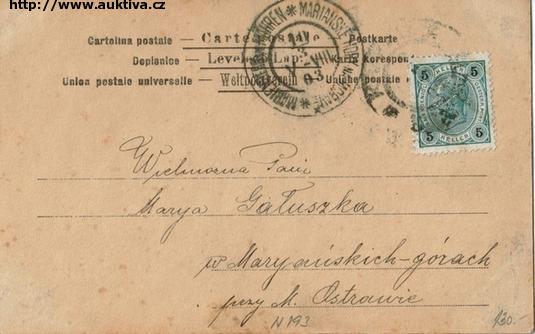 http://www.auktiva.cz
Cartolina postale — Carte postale — Postkarte
Dopisnice — Levelező-Lap — Karta korespon
Union postale universelle — Weltpostverein — Unione postale
MARIÁNSKÉ HORY
VIII
03
5 5
HELLER
5 5
HELLER
Wielmożna Pani
Marya Gałuszka
w Maryańskich-górach
przy M. Ostrawie
N 193
130.-